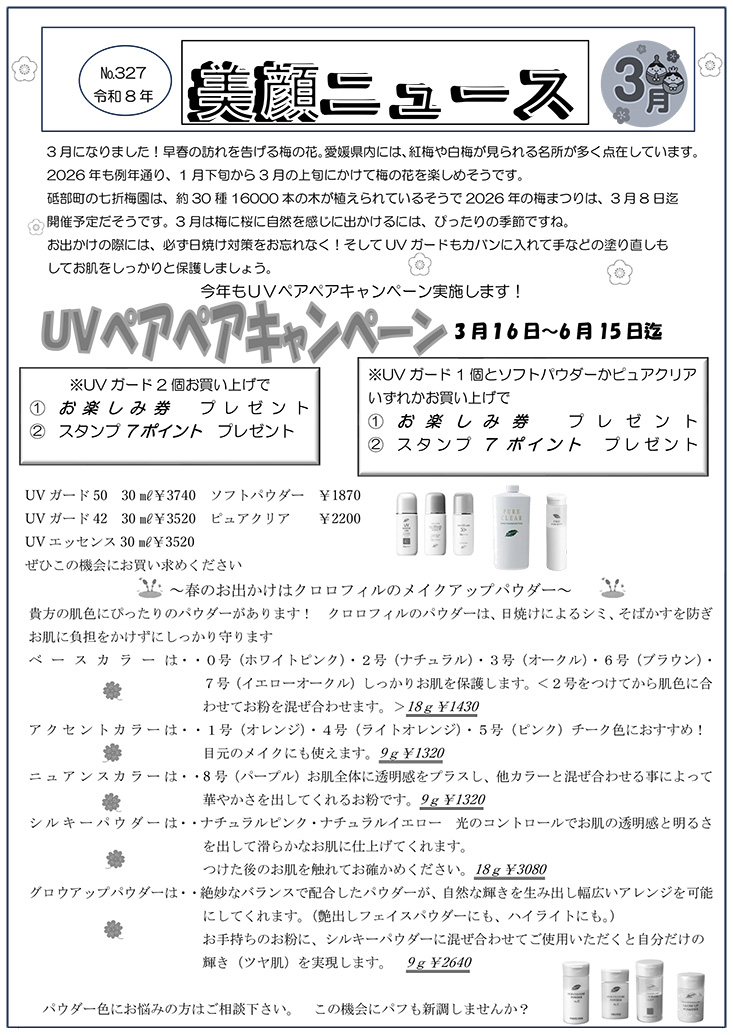 №327
令和８年
美顔ニュース
3月
３月になりました！早春の訪れを告げる梅の花。愛媛県内には、紅梅や白梅が見られる名所が多く点在しています。
2026年も例年通り、１月下旬から３月の上旬にかけて梅の花を楽しめそうです。
砥部町の七折梅園は、約30種16000本の木が植えられているそうで2026年の梅まつりは、３月８日迄
開催予定だそうです。３月は梅に桜に自然を感じに出かけるには、ぴったりの季節ですね。
お出かけの際には、必ず日焼け対策をお忘れなく！そしてUVガードもカバンに入れて手などの塗り直しも
してお肌をしっかりと保護しましょう。
今年もＵＶペアペアキャンペーン実施します！
UVペアペアキャンペーン 3月16日～6月15日迄
※UVガード２個お買い上げで
① お楽しみ券 プレゼント
② スタンプ７ポイント プレゼント
※UVガード１個とソフトパウダーかピュアクリア
いずれかお買い上げで
① お楽しみ券 プレゼント
② スタンプ７ポイント プレゼント
UVガード50 30㎖￥3740 ソフトパウダー ￥1870
UVガード42 30㎖￥3520 ピュアクリア ￥2200
UVエッセンス30㎖￥3520
ぜひこの機会にお買い求めください
PURE
CLEAR
～春のお出かけはクロロフィルのメイクアップパウダー～
貴方の肌色にぴったりのパウダーがあります！ クロロフィルのパウダーは、日焼けによるシミ、そばかすを防ぎ
お肌に負担をかけずにしっかり守ります
ベースカラーは・・０号（ホワイトピンク）・２号（ナチュラル）・３号（オークル）・６号（ブラウン）・
７号（イエローオークル）しっかりお肌を保護します。＜２号をつけてから肌色に合
わせてお粉を混ぜ合わせます。＞18ｇ￥1430
アクセントカラーは・・１号（オレンジ）・４号（ライトオレンジ）・５号（ピンク）チーク色におすすめ！
目元のメイクにも使えます。9ｇ￥1320
ニュアンスカラーは・・8号（パープル）お肌全体に透明感をプラスし、他カラーと混ぜ合わせる事によって
華やかさを出してくれるお粉です。9ｇ￥1320
シルキーパウダーは・・ナチュラルピンク・ナチュラルイエロー 光のコントロールでお肌の透明感と明るさ
を出して滑らかなお肌に仕上げてくれます。
つけた後のお肌を触れてお確かめください。18ｇ￥3080
グロウアップパウダーは・・絶妙なバランスで配合したパウダーが、自然な輝きを生み出し幅広いアレンジを可能
にしてくれます。（艶出しフェイスパウダーにも、ハイライトにも。）
お手持ちのお粉に、シルキーパウダーに混ぜ合わせてご使用いただくと自分だけの
輝き（ツヤ肌）を実現します。 9ｇ￥2640
パウダー色にお悩みの方はご相談下さい。 この機会にパフも新調しませんか？